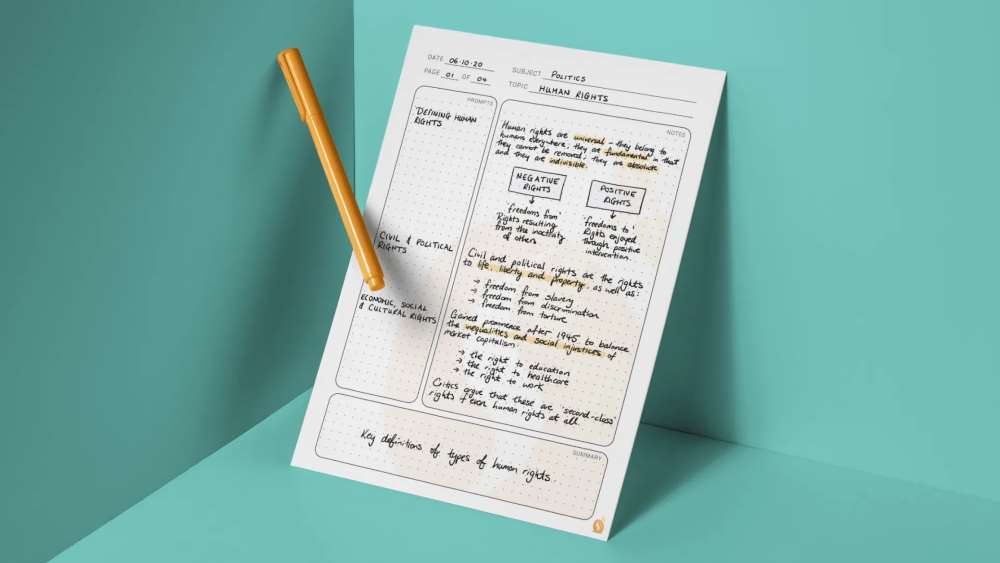 DATE 06.10.20
PAGE 01 OF 04
SUBJECT POLITICS
TOPIC HUMAN RIGHTS
PROMPTS
'DEFINING HUMAN
RIGHTS
CIVIL & POLITICAL
RIGHTS
ECONOMIC, SOCIAL
& CULTURAL RIGHTS
NOTES
Human rights are universal - they belong to
humans everywhere, they are fundamental in that
they cannot be removed, they are absolute
and they are indivisible.
NEGATIVE
RIGHTS
'freedoms from'
Rights resulting
from the inactivity
of others
POSITIVE
RIGHTS
'freedoms to'
Rights enjoyed
through positive
intervention.
Civil and political rights are the rights
to life, liberty and property, as well as:
→ freedom from slavery
→ freedom from discrimination
→ freedom from torture
Gained prominence after 1945 to balance
the inequalities and social injustices of
market capitalism:
→ the right to education
→ the right to healthcare
→ the right to work
Critics argue that these are 'second-class'
rights if even human rights at all.
SUMMARY
Key definitions of types of human rights.